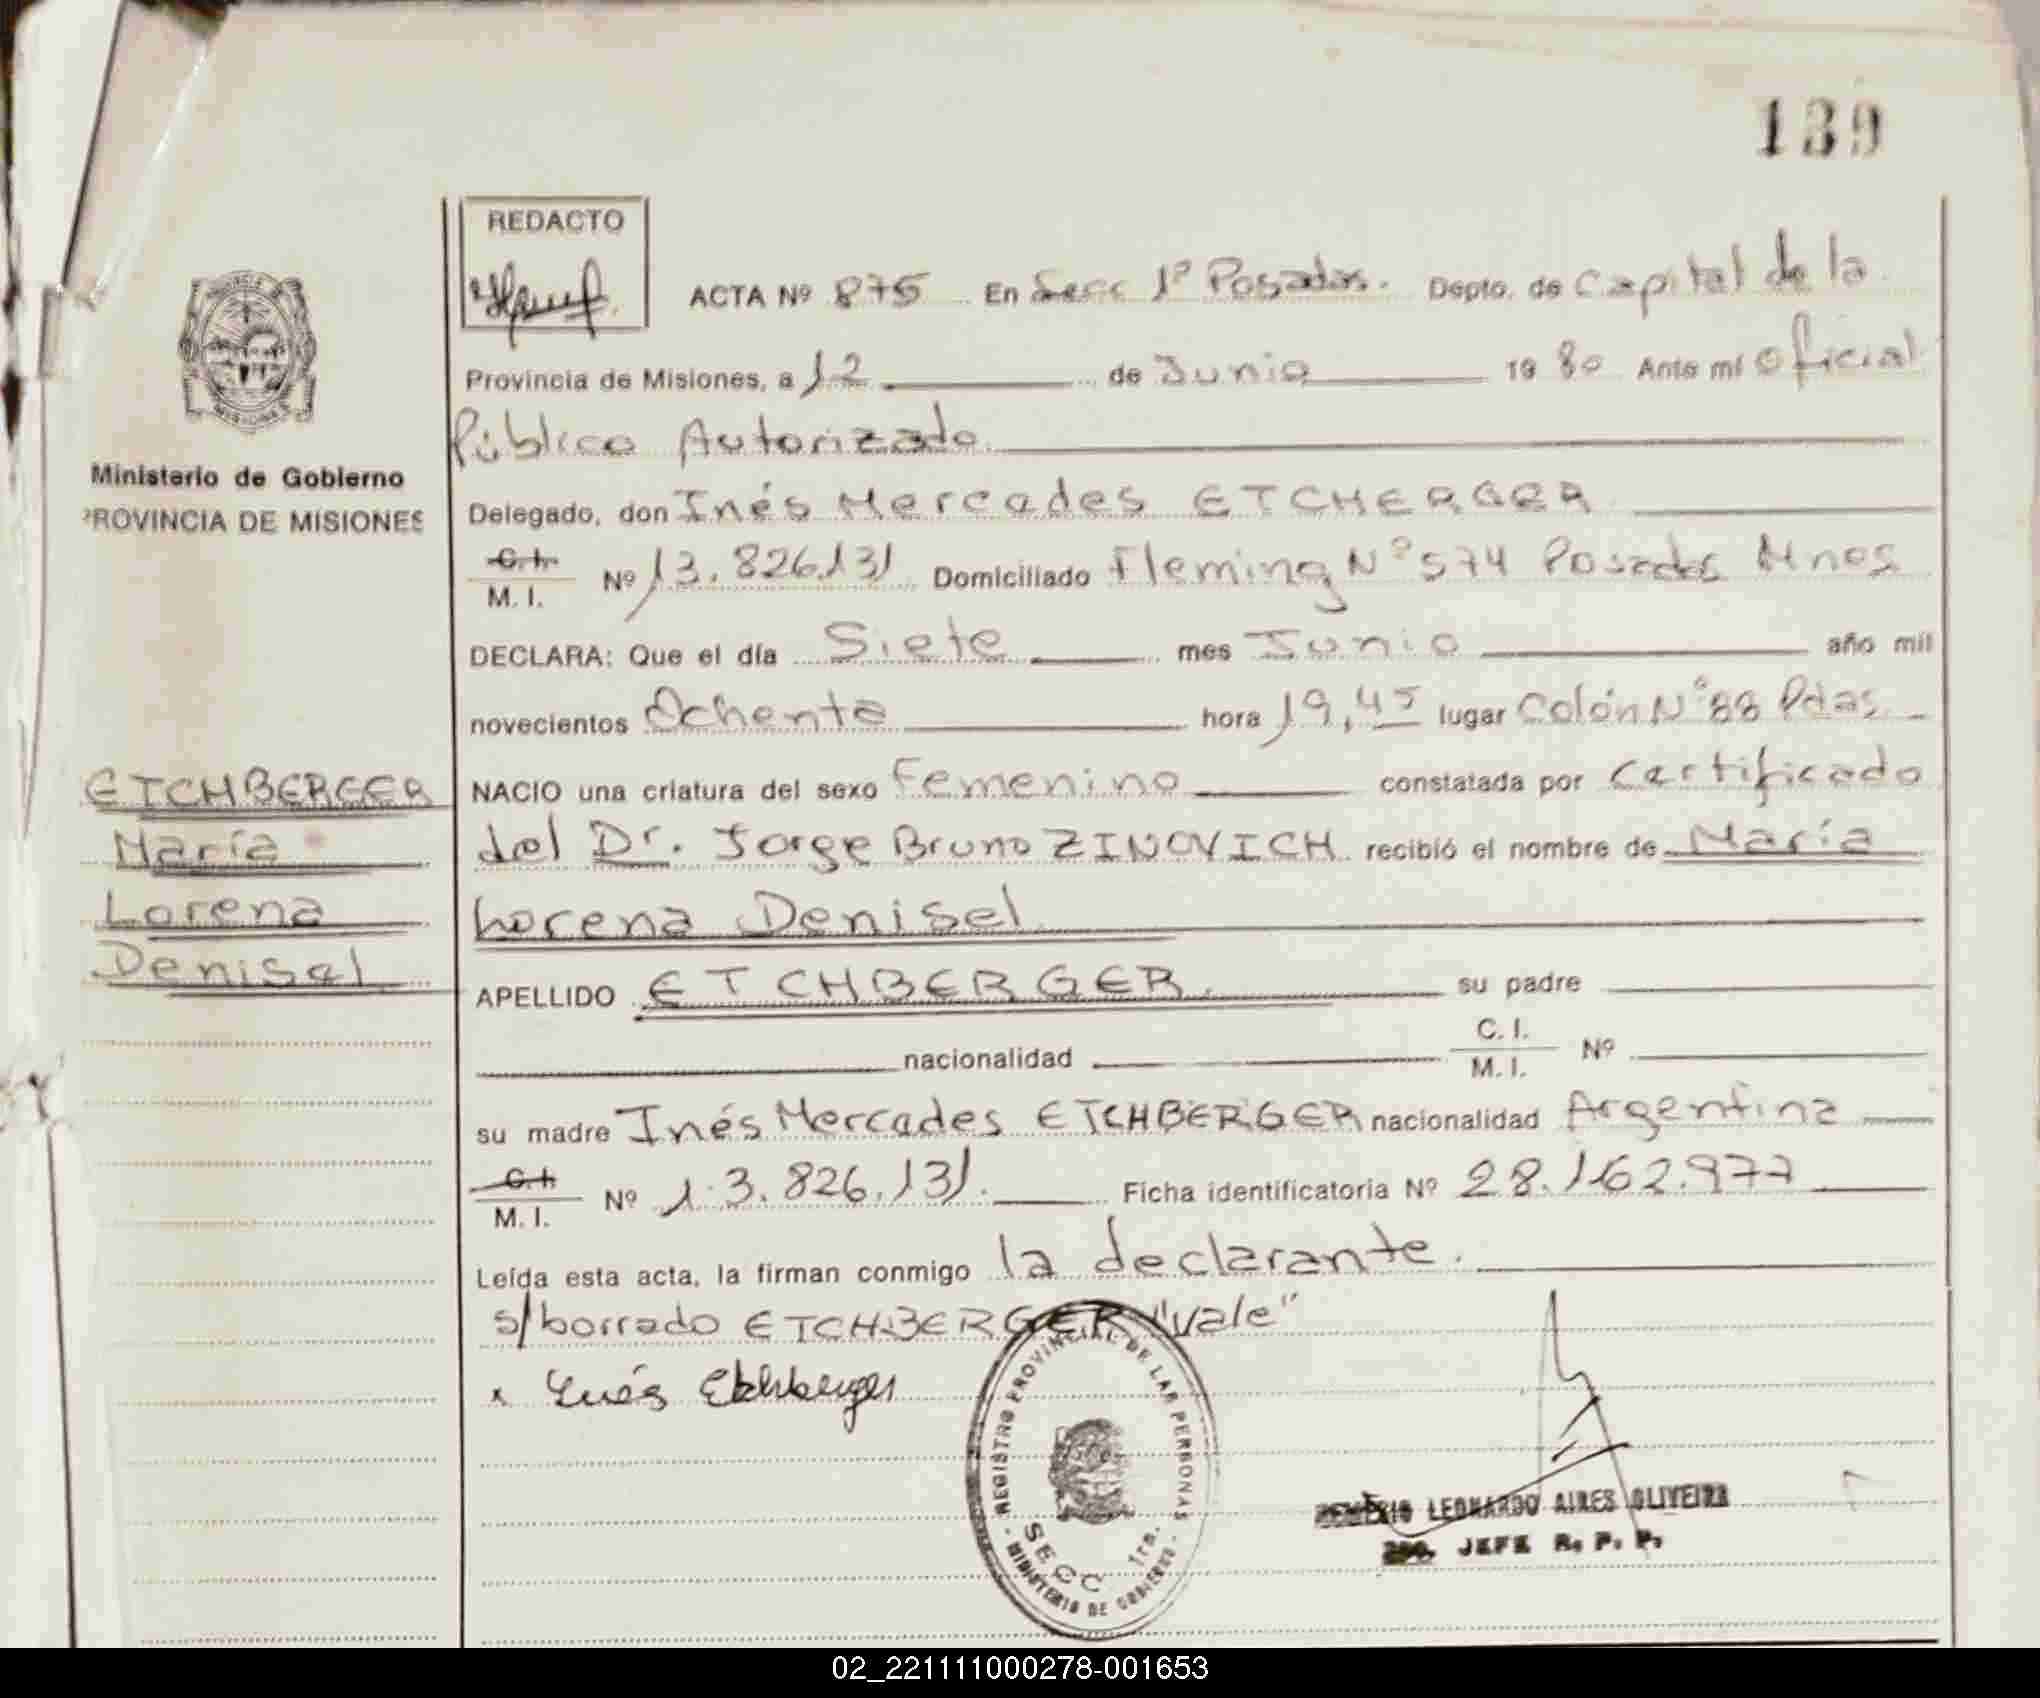 139
REDACTO
ACTA Nº 875 En Secc 1ª Posadas. Depto. de Capital de la
Provincia de Misiones, a 12 de Junio 19 80 Ante mí Oficial
Público Autorizado
Ministerio de Gobierno
PROVINCIA DE MISIONES
Delegado, don Inés Mercedes ETCHERGER
C.I. M. I. Nº 13.826.131 Domiciliado Fleming Nº 574 Posadas Mnes
DECLARA: Que el día Siete mes Junio año mil
novecientos Ochenta hora 19,45 lugar Colón Nº 88 Pdas
NACIO una criatura del sexo Femenino constatada por Certificado
del Dr. Jorge Bruno ZINOVICH recibió el nombre de María
Lorena Denisel
ETCHBERGER
María
Lorena
Denisel
APELLIDO ETCHBERGER. su padre
nacionalidad C. I. M. I. Nº
su madre Inés Mercedes ETCHBERGER nacionalidad Argentina
C.I. M. I. Nº 13.826.131. Ficha identificatoria Nº 28.162.977
Leída esta acta, la firman conmigo la declarante.
s/borrado ETCHBERGER "vale"
x Inés Etchberger
REGISTRO PROVINCIAL DE LAS PERSONAS
SECC 1ra.
MINISTERIO DE GOBIERNO
LEONARDO AIRES OLIVEIRA
JEFE R. P. P.
02_221111000278-001653